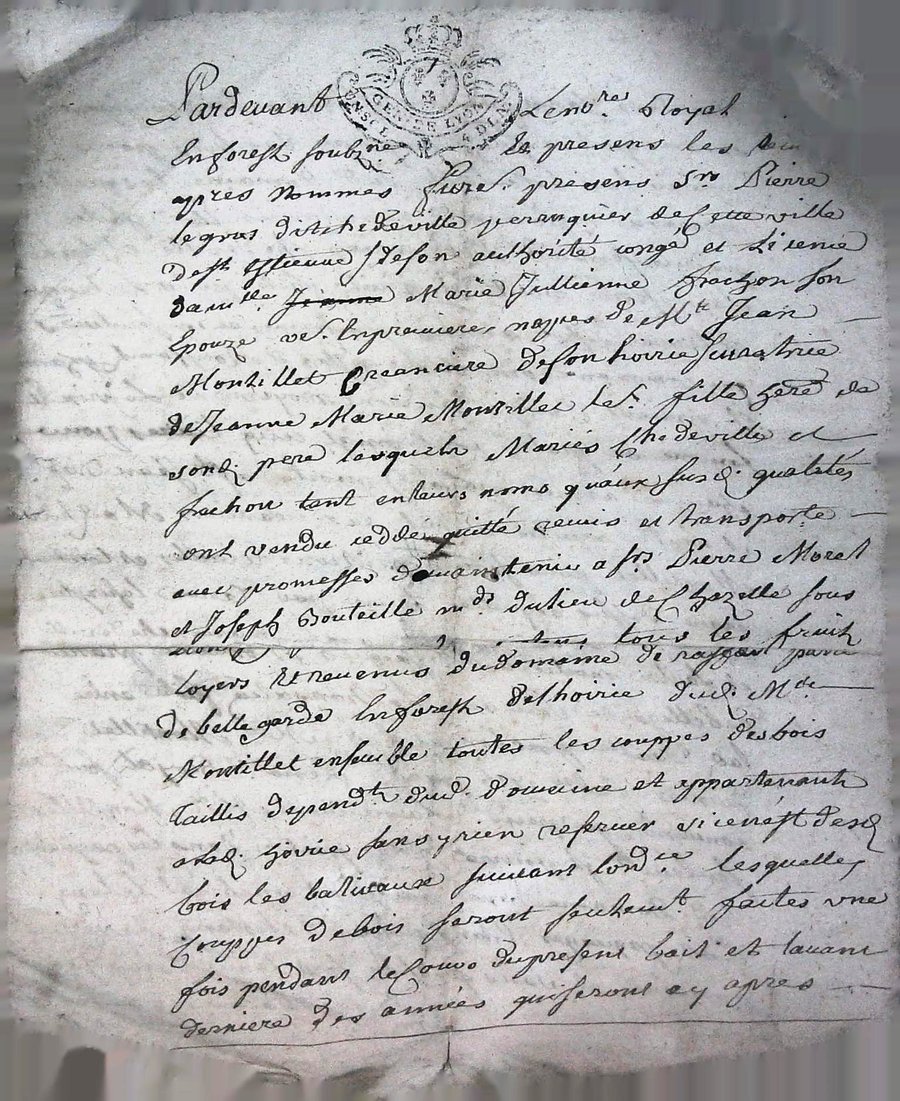 Pardevant Le no.re Royal
GEN. DE LYON
En forest soub.né Et presens les
apres nommes furet presens Sr. Pierre
legros dit chedeville perruquier de Cette ville
de st. Estienne & de son authorité congé et Licence
dam.lle Jeanne Marie Jullienne frachon son
Epouze ve. En premieres nopces de Mtre Jean
Montillet Creanciere de son hoirie
de Jeanne Marie Montillet fille here. de
sond. pere lesquels Mariés Chedeville et
frachon tant en leurs noms qu'aux susd. qualités
ont vendu ceddé quitté remis et transporté
avec promesses de maintenir a srs. Pierre Morel
et Joseph Bouteille mds. du lieu de Chazelle sous
tous les fruits
loyers Et revenus du domaine de parr.
de bellegarde En forest de l'hoirie dud. Mtre
Montillet ensemble toutes les couppes des bois
Taillis depend.t dud. domaine et appartenant
a lad. hoirie sans y rien reserver si ce n'est desd.
bois les baliveaux suivant l'ond.ce lesquelles
Couppes de bois seront seulem.t faites une
fois pendant le Cours du present bail et lavant
derniere des années qui seront cy apres